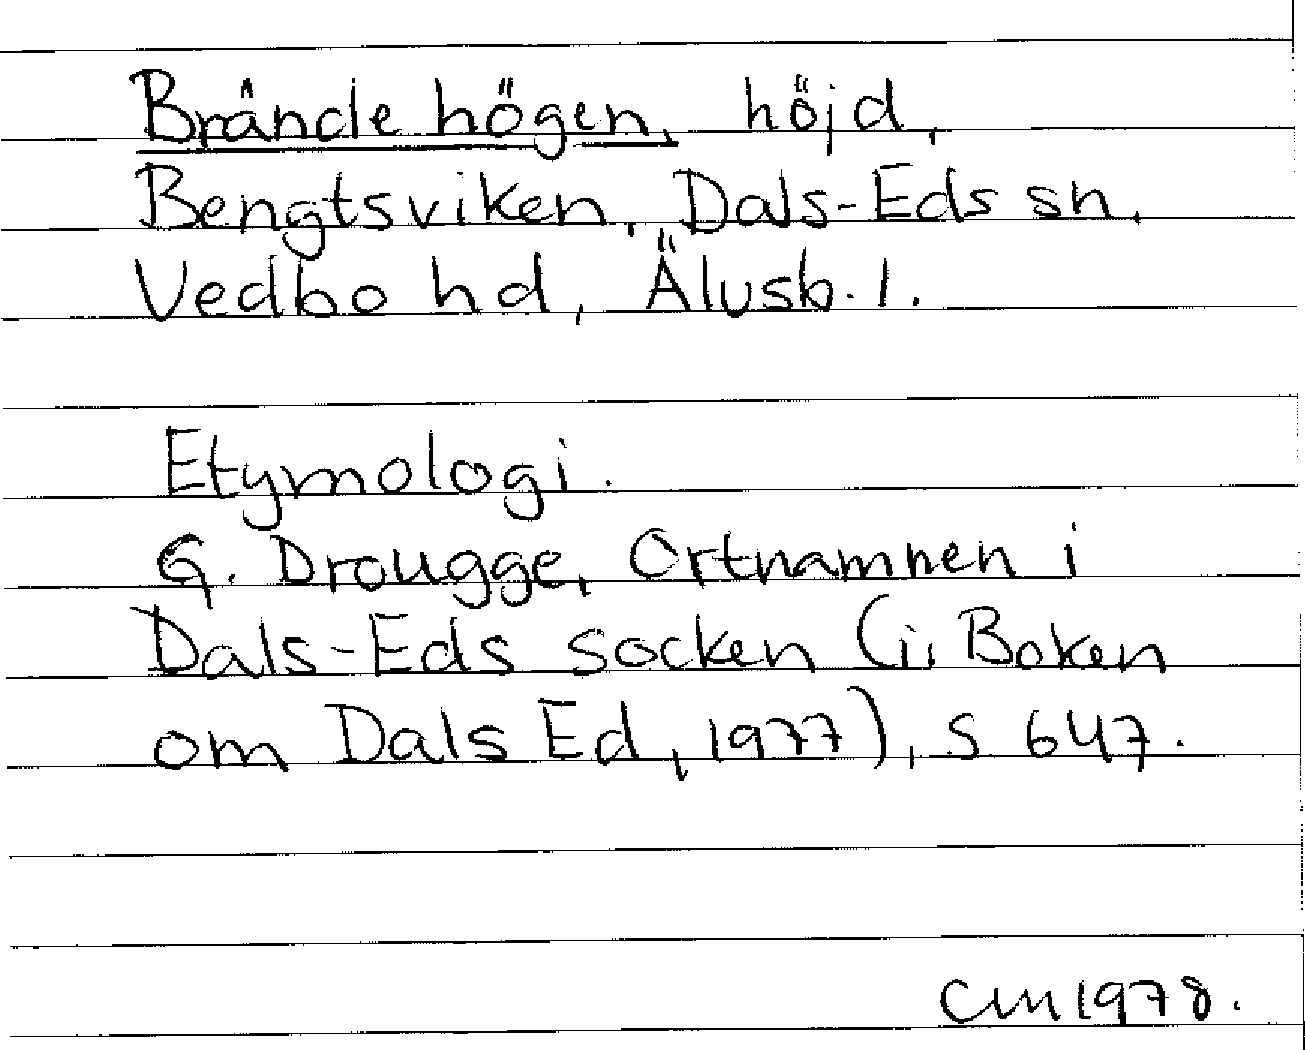 Brände högen, höjd,
Bengtsviken, Dals-Eds sn,
Vedbo hd, Älvsb. l.
Etymologi.
G. Drougge, Ortnamnen i
Dals-Eds socken (i: Boken
om Dals Ed, 1977), s 647.
CM 1978.